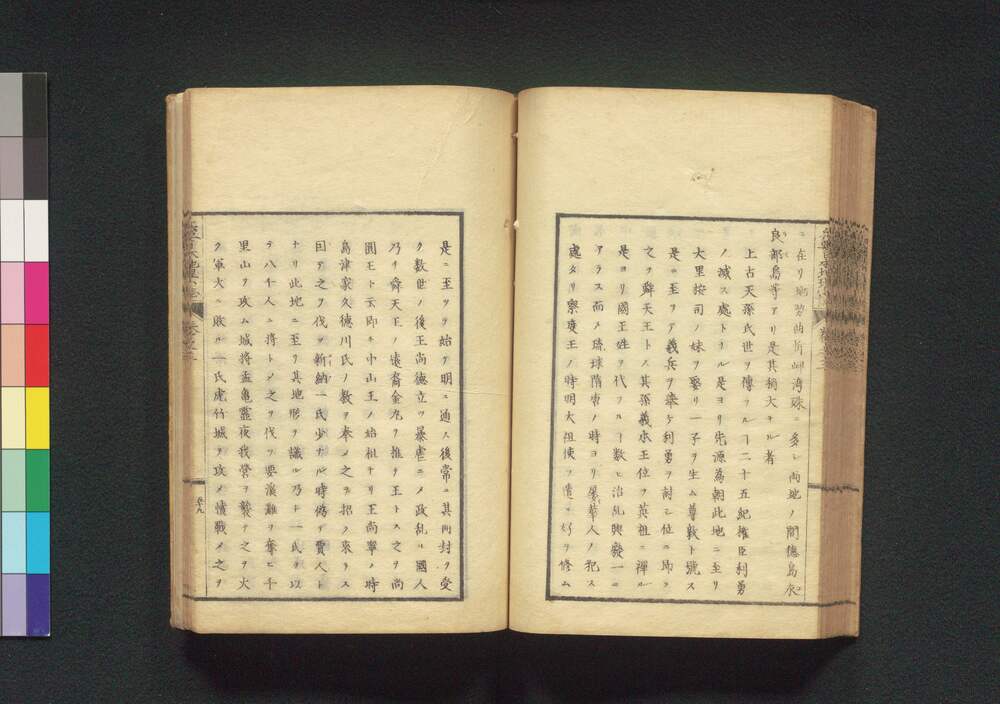 ニ在リ港碧曲折岬湾殊ニ多シ両地ノ間徳島永
良部島等アリ是其稍大ナル者
上古天孫氏世ヲ傳フル丁二十五紀権臣利勇
ノ滅ス處トナル是ヨリ先源為朝此地ニ至リ
大里按司ノ妹ヲ娶リ一子ヲ生ム尊敦ト號ス
是ニ至テ義兵ヲ挙ケ利勇ヲ討シ位ニ即ク
之ヲ舜天王トス其孫義本王位ヲ英祖ニ禪ル
是ヨリ國王姓ヲ代フル丁数ヒ治乱興廢一ニ
アラス而メ琉球隋唐ノ時ヨリ屡華人ノ犯ス
處タリ察度王ノ時明太祖使ヲ遣リ好ヲ修ム
是ニ至ツテ始テ明ニ通ス後常ニ其冊封ヲ受
ク数世ノ後王尚徳立ツ暴虐ニメ政乱ル國人
乃チ舜天王ノ遠裔金丸ヲ推テ王トス之ヲ尚
圓王ト云即チ中山王ノ始祖ナリ王尚寧ノ時
島津家久徳川氏ノ教ヲ奉メ之ヲ招ク來ラス
因テ之ヲ伐ツ新納一氏少ナル時偽テ賈人ト
ナリ此地ニ至リ其地形ヲ識ル乃ト一氏ヲ以
テ八千人ニ将トメ之ヲ伐ツ要溪灘ヲ奪ヒ千
里山ヲ攻ム城将孟亀靈夜我営ヲ襲テ之ヲ火
ク軍大ニ敗ル一氏虎竹城ヲ攻メ憤戰メ之ヲ
五十九